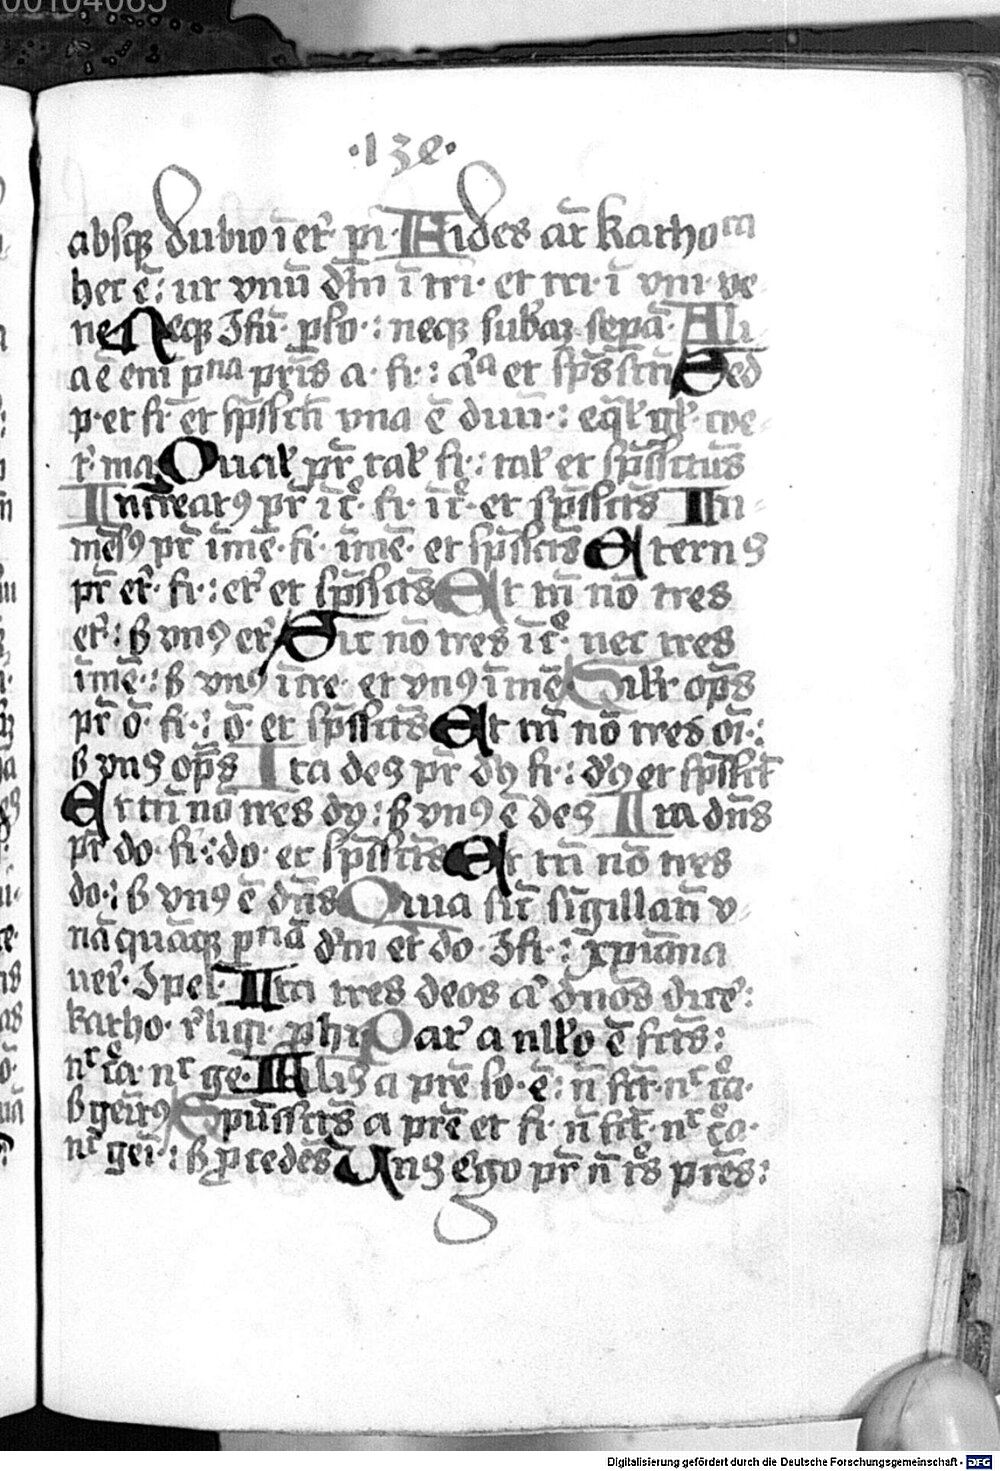 00104065
·132·
absqꝫ dubio ī et᷑ pi· Fides aūt katho
hec ē: ut vnū dm̄ ī tri· et tri· ī vni ve
ne Neqꝫ ꝯfū· pso·: neqꝫ subaꝫ sepā· Ali
a ē eni᷑ pna pr̄is a· fi·: a᷑a et sp̄s scti Sed
p· et fi· et sp̄ssctī vna ē diui·: eql᷑ gl᷑· coe
t᷑· ma Qual᷑ pr̄ tal᷑ fi·: tal᷑ et sp̄ssctūs
Increatꝰ pr̄ ic᷑· fi· ic᷑· et sp̄ssctūs In
mēsꝰ pr̄ īmē· fi· īmē· et sp̄ssctūs Eternꝰ
pr̄ et᷑· fi·: et᷑ et sp̄ssctūs Et tn̄ nō tres
et᷑·: ß vnꝰ et᷑ Sic nō tres ic᷑· nec tres
īmē·: ß vnꝰ īcre· et vnꝰ īmē Silr̄ op̄s
pr̄ o᷑· fi·: o᷑· et sp̄ssctūs Et tn̄ nō tres oī·:
ß vnꝰ op̄s Ita deꝰ pr̄ dꝰ fi·: dꝰ et sp̄sscts̄
Et tn̄ nō tres dij: ß vnꝰ ē deꝰ Ita dn̄s
pr̄ do· fi·: do· et sp̄ssctūs Et tn̄ nō tres
do·: ß vnꝰ ē dn̄s Quia sic᷑ sīgillatī v
nā quāqꝫ pnā dm̄ et do· ꝯfi·: xpiāna
uer᷑· ꝯpel· Ita tres deos a᷑ dn̄os dice᷑:
katho· r᷑ligi· phi Pat᷑ a nullo ē fcts̄:
nc c᷑a· nc ge᷑· Filiꝰ a pr̄e so· ē: n̄ fct᷑· nc c᷑a·
ß genitꝰ Sp̄ussctūs a pr̄e et fi· n̄ fct᷑· nc c᷑a·
nc geī·: ß ꝓcedēs Vnꝰ ergo pr̄ n̄ t᷑s pr̄es:
Digitalisierung gefördert durch die Deutsche Forschungsgemeinschaft - DFG